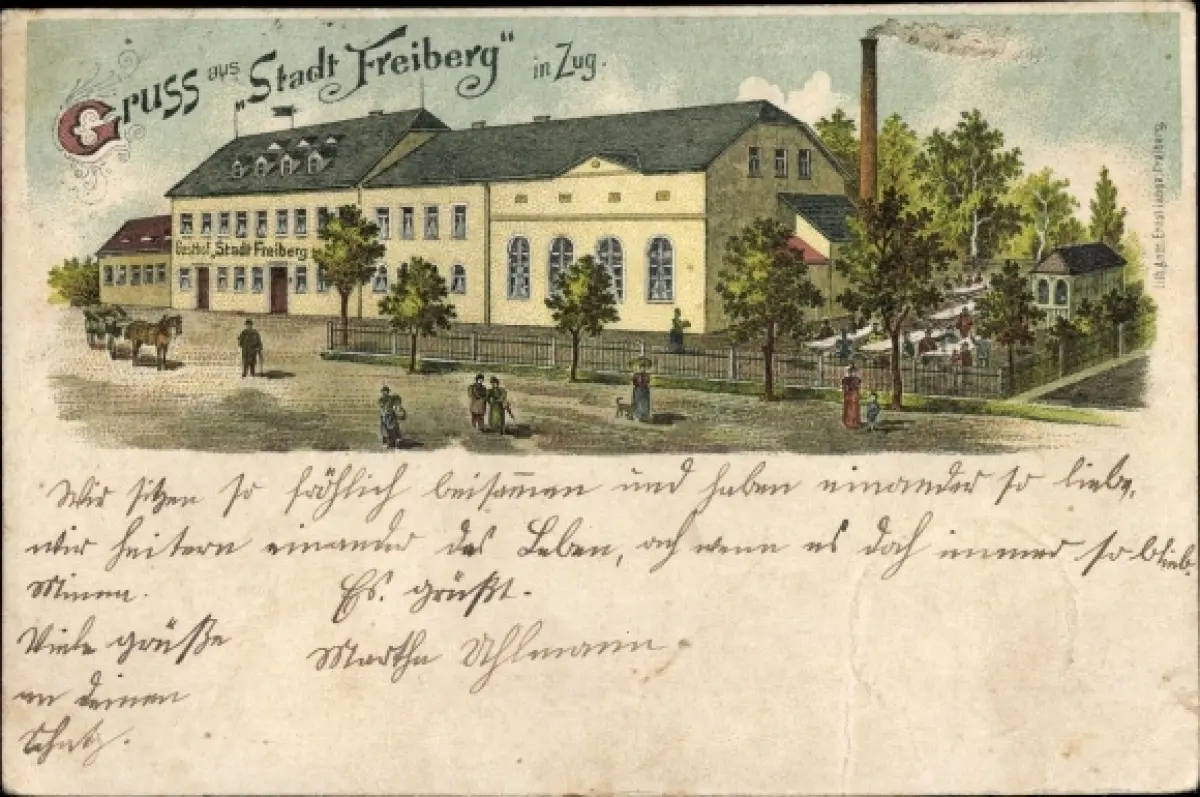 Gruss aus „Stadt Freiberg“ in Zug.
Gasthof „Stadt Freiberg
Lith. Anst. Ernst Lange, Freiberg.
Wir sitzen so fröhlich beisam̅en und haben einander so liebe,
wir heitern einander das Leben, ach wenn es doch immer so blieb.
Minna.
Es. grüßt.
Martha Uhlmann.
Viele grüße
an deinen
Schatz.